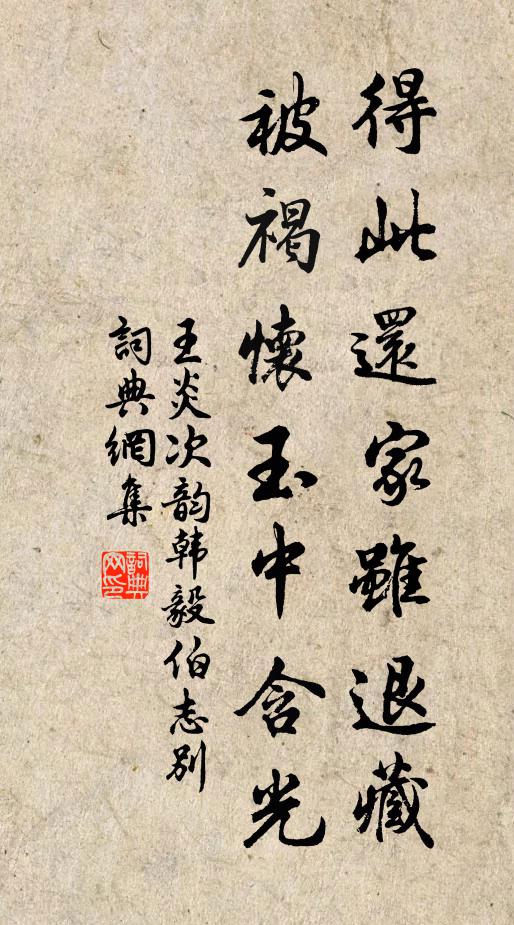 得此還家雖退藏
被褐懷玉中含光
王炎次韵韩毅伯志别
詞典網集
詞典网印